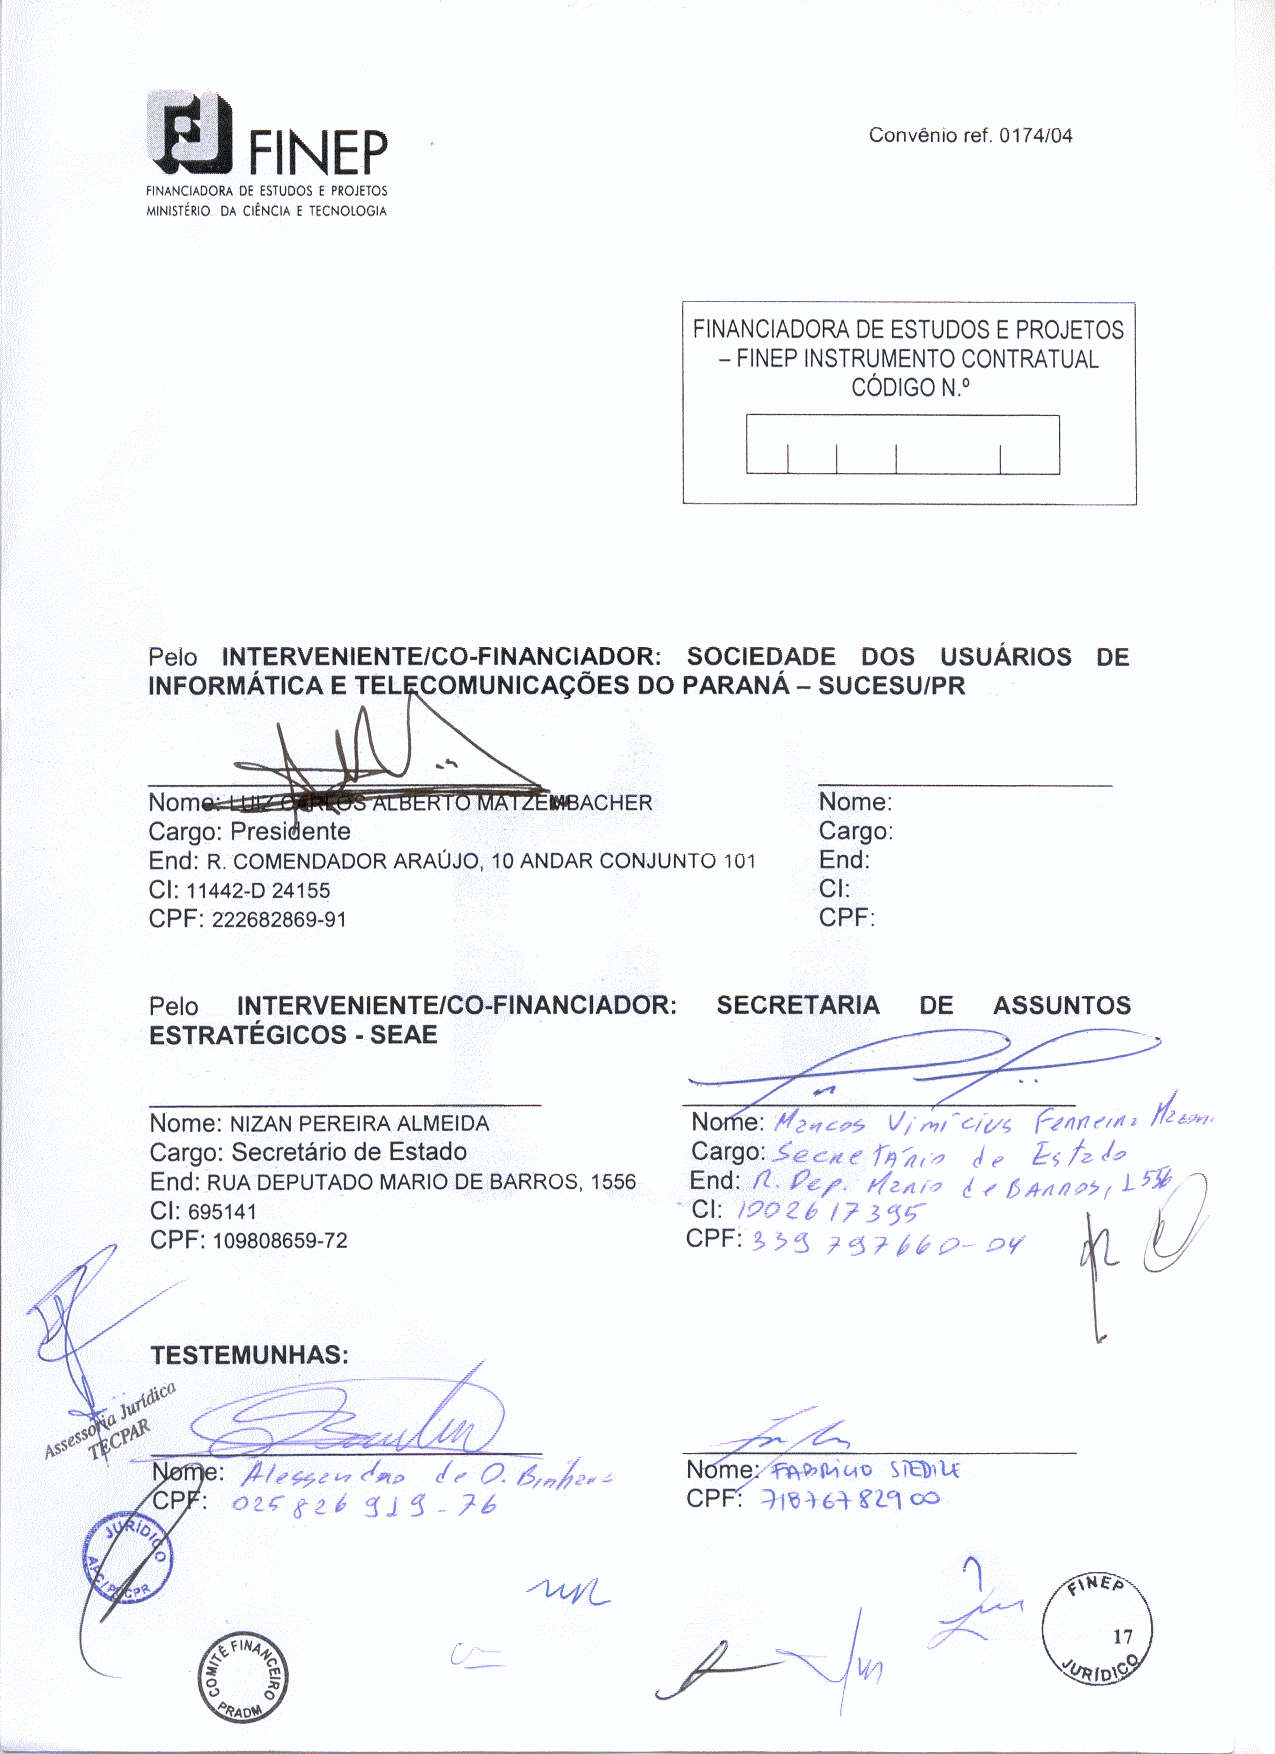 FINEP
FINANCIADORA DE ESTUDOS E PROJETOS
MINISTÉRIO DA CIÊNCIA E TECNOLOGIA
Convênio ref. 0174/04
FINANCIADORA DE ESTUDOS E PROJETOS
– FINEP INSTRUMENTO CONTRATUAL
CÓDIGO N.º
Pelo INTERVENIENTE/CO-FINANCIADOR: SOCIEDADE DOS USUÁRIOS DE
INFORMÁTICA E TELECOMUNICAÇÕES DO PARANÁ – SUCESU/PR
Nome: LUIZ CARLOS ALBERTO MATZEMBACHER
Cargo: Presidente
End: R. COMENDADOR ARAÚJO, 10 ANDAR CONJUNTO 101
CI: 11442-D 24155
CPF: 222682869-91
Nome:
Cargo:
End:
CI:
CPF:
Pelo INTERVENIENTE/CO-FINANCIADOR: SECRETARIA DE ASSUNTOS
ESTRATÉGICOS - SEAE
Nome: NIZAN PEREIRA ALMEIDA
Cargo: Secretário de Estado
End: RUA DEPUTADO MARIO DE BARROS, 1556
CI: 695141
CPF: 109808659-72
Nome: Marcos Vinicius Ferreira Mazoni
Cargo: Secretário de Estado
End: R. Dep. Mario de Barros, 1556
CI: 1002617395
CPF: 339 797660-04
TESTEMUNHAS:
Assessoria Jurídica
TECPAR
Nome: Alessandro de O.
CPF: 025826919-76
Nome: FABRICIO STEDILE
CPF: 71876782900
JURÍDICO
COMITÊ FINANCEIRO
PRADM
FINEP
17
JURÍDICO